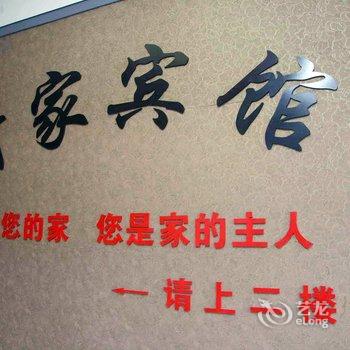 家宾馆
您的家 您是家的主人
←请上二楼
艺龙
eLong